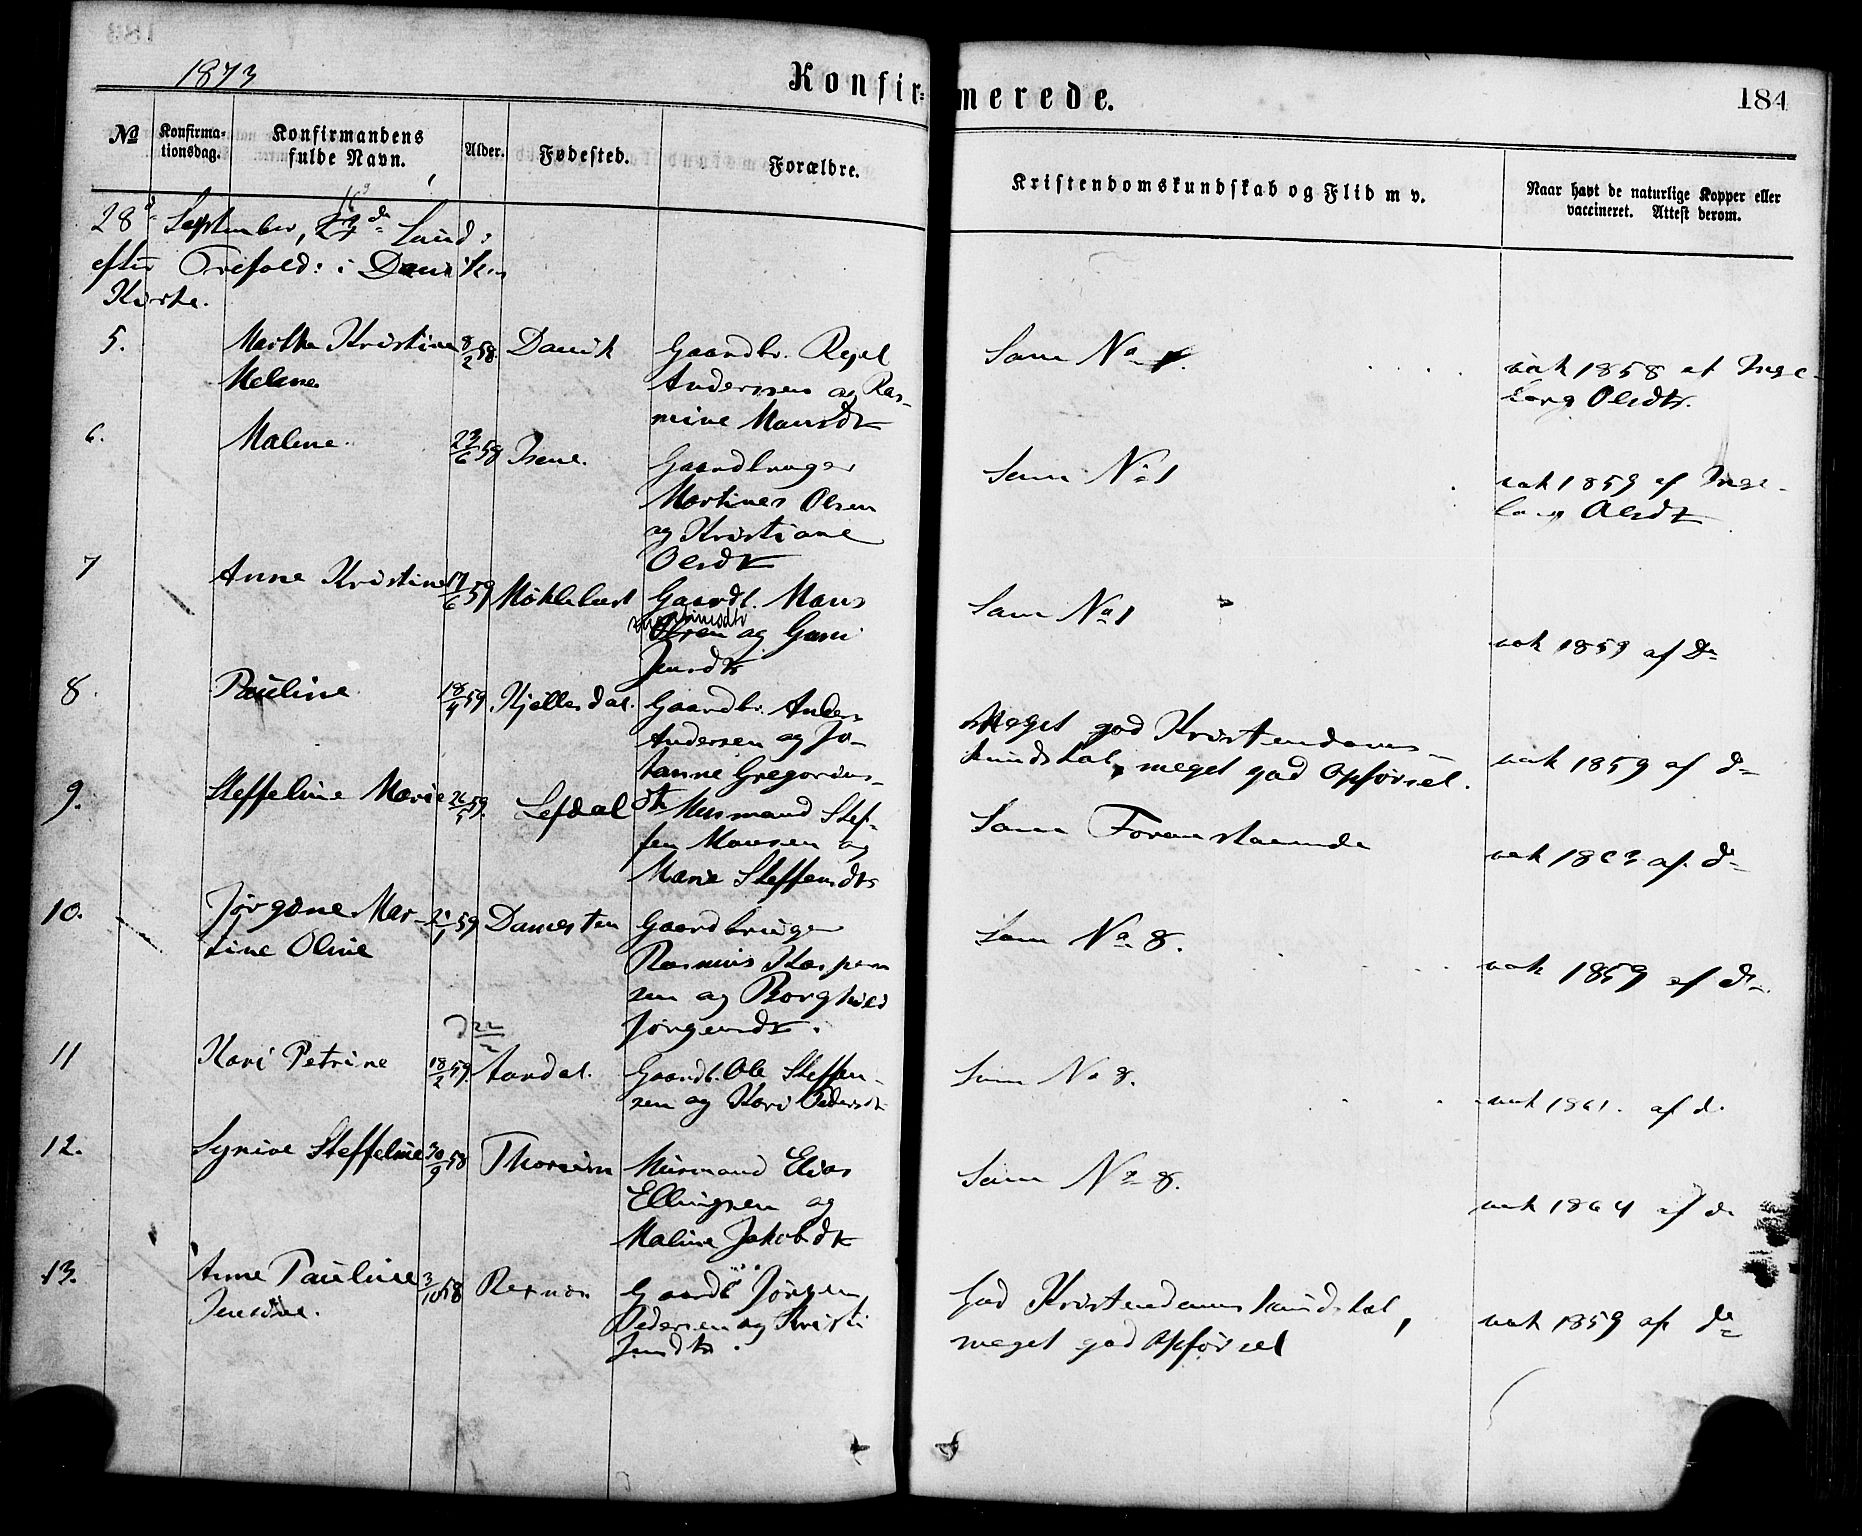 1873
Konfirmerede.
184
No
Konfirmationsdag.
Konfirmandens fulde Navn.
Alder.
Fødested.
Forældre.
Kristendomskundskab og Flid m v.
Naar havt de naturlige Kopper eller
vaccineret. Attest derom.
28d September, 16de Sønd:
efter Trefold: i Daviken
Kirke.
5. Martha Kristine 8/2 58. Davik Gaardbr.
Anderssen og Ras-
mine Mansdtr
Som No 1. vak 1858 af Inge-
borg Olsdtr.
6. Malene. 23/6 58 Isene. Gaardbruger
Martinus Olsen
og Kristiane
Olsdtr
Som No 1 vak 1859 af Inge-
borg Olsdtr
7 Anne Kristine 17/6 59 Møklebust Gaardb. Mons
Olsen og
Jensdtr
Som No 1 vak 1859 af Do
8. Pauline 18/4 59. Hjelledal. Gaardbr. Anders
Andersen og Jo-
hanne Gregorius-
dtr
Meget god Kristendoms-
kundskab, meget god Opførsel. vak 1859 af do
9. Steffeline Marie 59. Lefdal Husmand Stef-
fen Monsen og
Marie Steffensdtr
Som Forenstaaende vak 1863 af do
10. Jørgine Mar-
tine Oline 59 Damesten Gaardbruger
Rasmus Kasper-
sen og Borghild
Jørgensdtr.
Som No 8. vak 1859 af do
11 Kari Petrine 18/2 59. Aardal. Gaardb. Ole Steffen-
sen og Kari Pedersdtr
Som No 8. vak 1861. af do
12. Synive Steffeline 30/9 58 Thorheim Husmand Elias
Ellingsen og
Maline Jakobsdtr
Som No 8. vak 1864 af do
13. Anne Pauline
Jensine. 3/10 58 Gaardb Jørgen
Pedersen og Kristi
Jensdtr.
God Kristendomskundskab,
meget god Opførsel vak 1859 af do